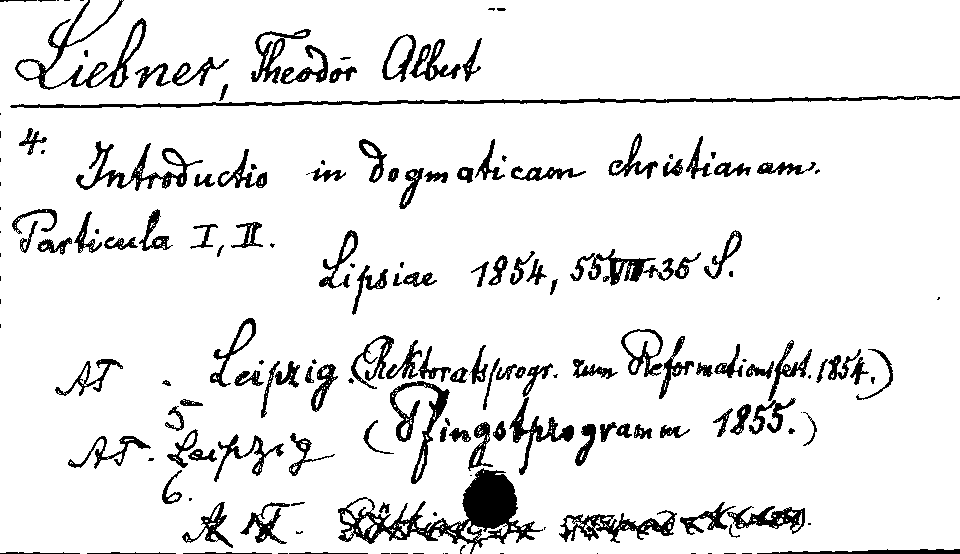 Liebner, Theodor Albert
4.
Introductio in dogmaticam christianam.
Particula I, II.
Lipsiae 1854, 55. VIII+36 S.
AT. Leipzig. (Rektoratsprogr. zum Reformationsfest. 1854.)
5
AT. Leipzig (Pfingstprogramm 1855.)
6.